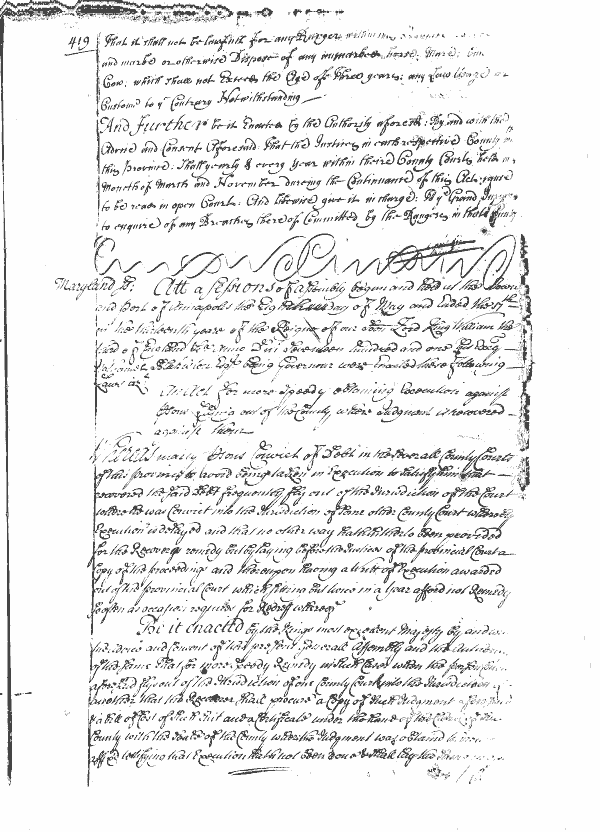 419
That it shall not be lawfull for any Ranger within
and marke or otherwise Dispose of any unmarked horse: Mare:
Cow: which shall not Exceed the Age of Three years: any Law Usage or
Custome to ye Contrary Notwithstanding
And Further be it Enacted by the Authority aforesd: By and with the
Advice and Consent Aforesaid: That the Justices in each respective County in
this Province: Shall yearly & every year within their County Courts held in
Moneth of March and November dureing the Continuance of this Act: cause
to be read in open Court: And likewise give it in charge: to ye Grand
to enquire of any Breaches thereof Committed by the Rangers in that County
Maryland ss: Att a Sessions of Assembly begun and held at the Town
and Port of Annapolis the Eighth day of May and Ended the 17th
in the thirteenth yeare of the Reigne of our Sovr: Lord King William the
third of England &c: Anno Dni Seventeen hundred and one his
Esqr: being Governour were Enacted these following
Laws
An Act for more speedy obtaining Execution against
psons flying out of the County where Judgment is recovered
against them
Whereas many psons Convict of Debt in the severall County Courts
of this province to avoid being taken in Execution to Satisfy him that
recovered the said Debt frequently fly out of the Jurisdiction of the Court
where he was Convict into the Jurisdiction of some other County Court whereby
Execution is delayed and that no other way hath hitherto been provided
for the Recoverrs remedy but by laying before the Justices of the provincial Court a
Copy of the proceedings and thereupon having a Writt of Execution awarded
out of the provincial Court which sitting but twice in a Year afford not Remedy
so often as occasion requires for Redress whereof
Be it enacted by the Kings most excellent Majesty by and
the advice and consent of this present Generall Assembly and the
of the same That for more speedy Remedy in such Cases when the person
aforesaid fly out of the Jurisdiction of one County Court into the Jurisdiction of
another that the Recoverer shall procure a Copy of such Judgment
& a bill of Cost of such suit and a Certificate under the hand of the Clerk of the
County with the seale of the County where the Judgment was obtained
certifying that Execution hath not been done & shall lay the